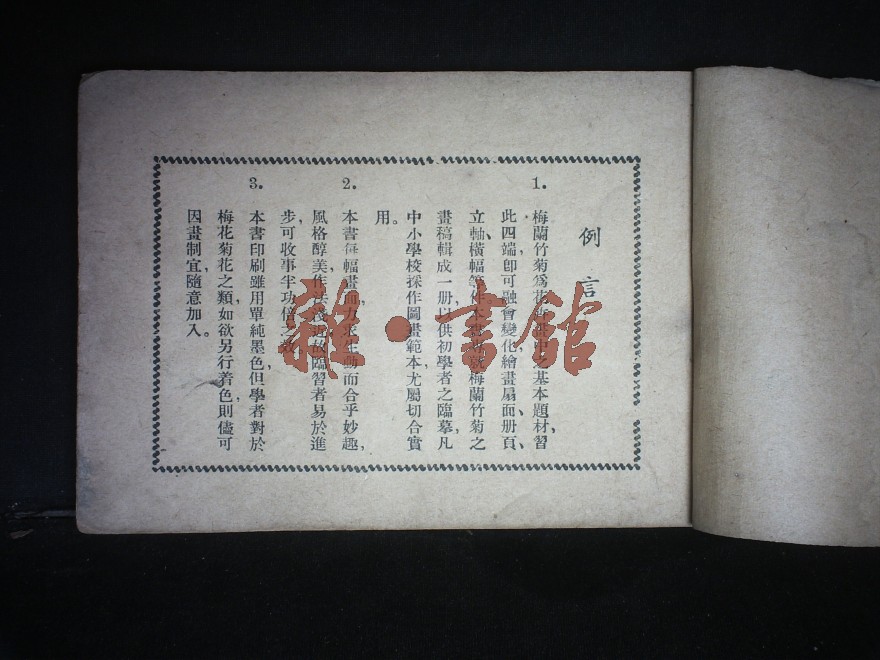 例言
1. 梅蘭竹菊爲花卉畫中之基本題材,習
此四端,卽可融會變化,繪畫扇面、册頁、
立軸、橫幅等件,本書 梅蘭竹菊之
畫稿輯成一册,以供初學者之臨摹,凡
中小學校採作圖畫範本,尤屬切合實
用。
2. 本書每幅畫面,力求生動而合乎妙趣,
風格醇美,作法淺近,故臨習者易於進
步,可收事半功倍之效。
3. 本書印刷雖用單純墨色,但學者對於
梅花菊花之類,如欲另行着色,則儘可
因畫制宜,隨意加入。
雜·書館